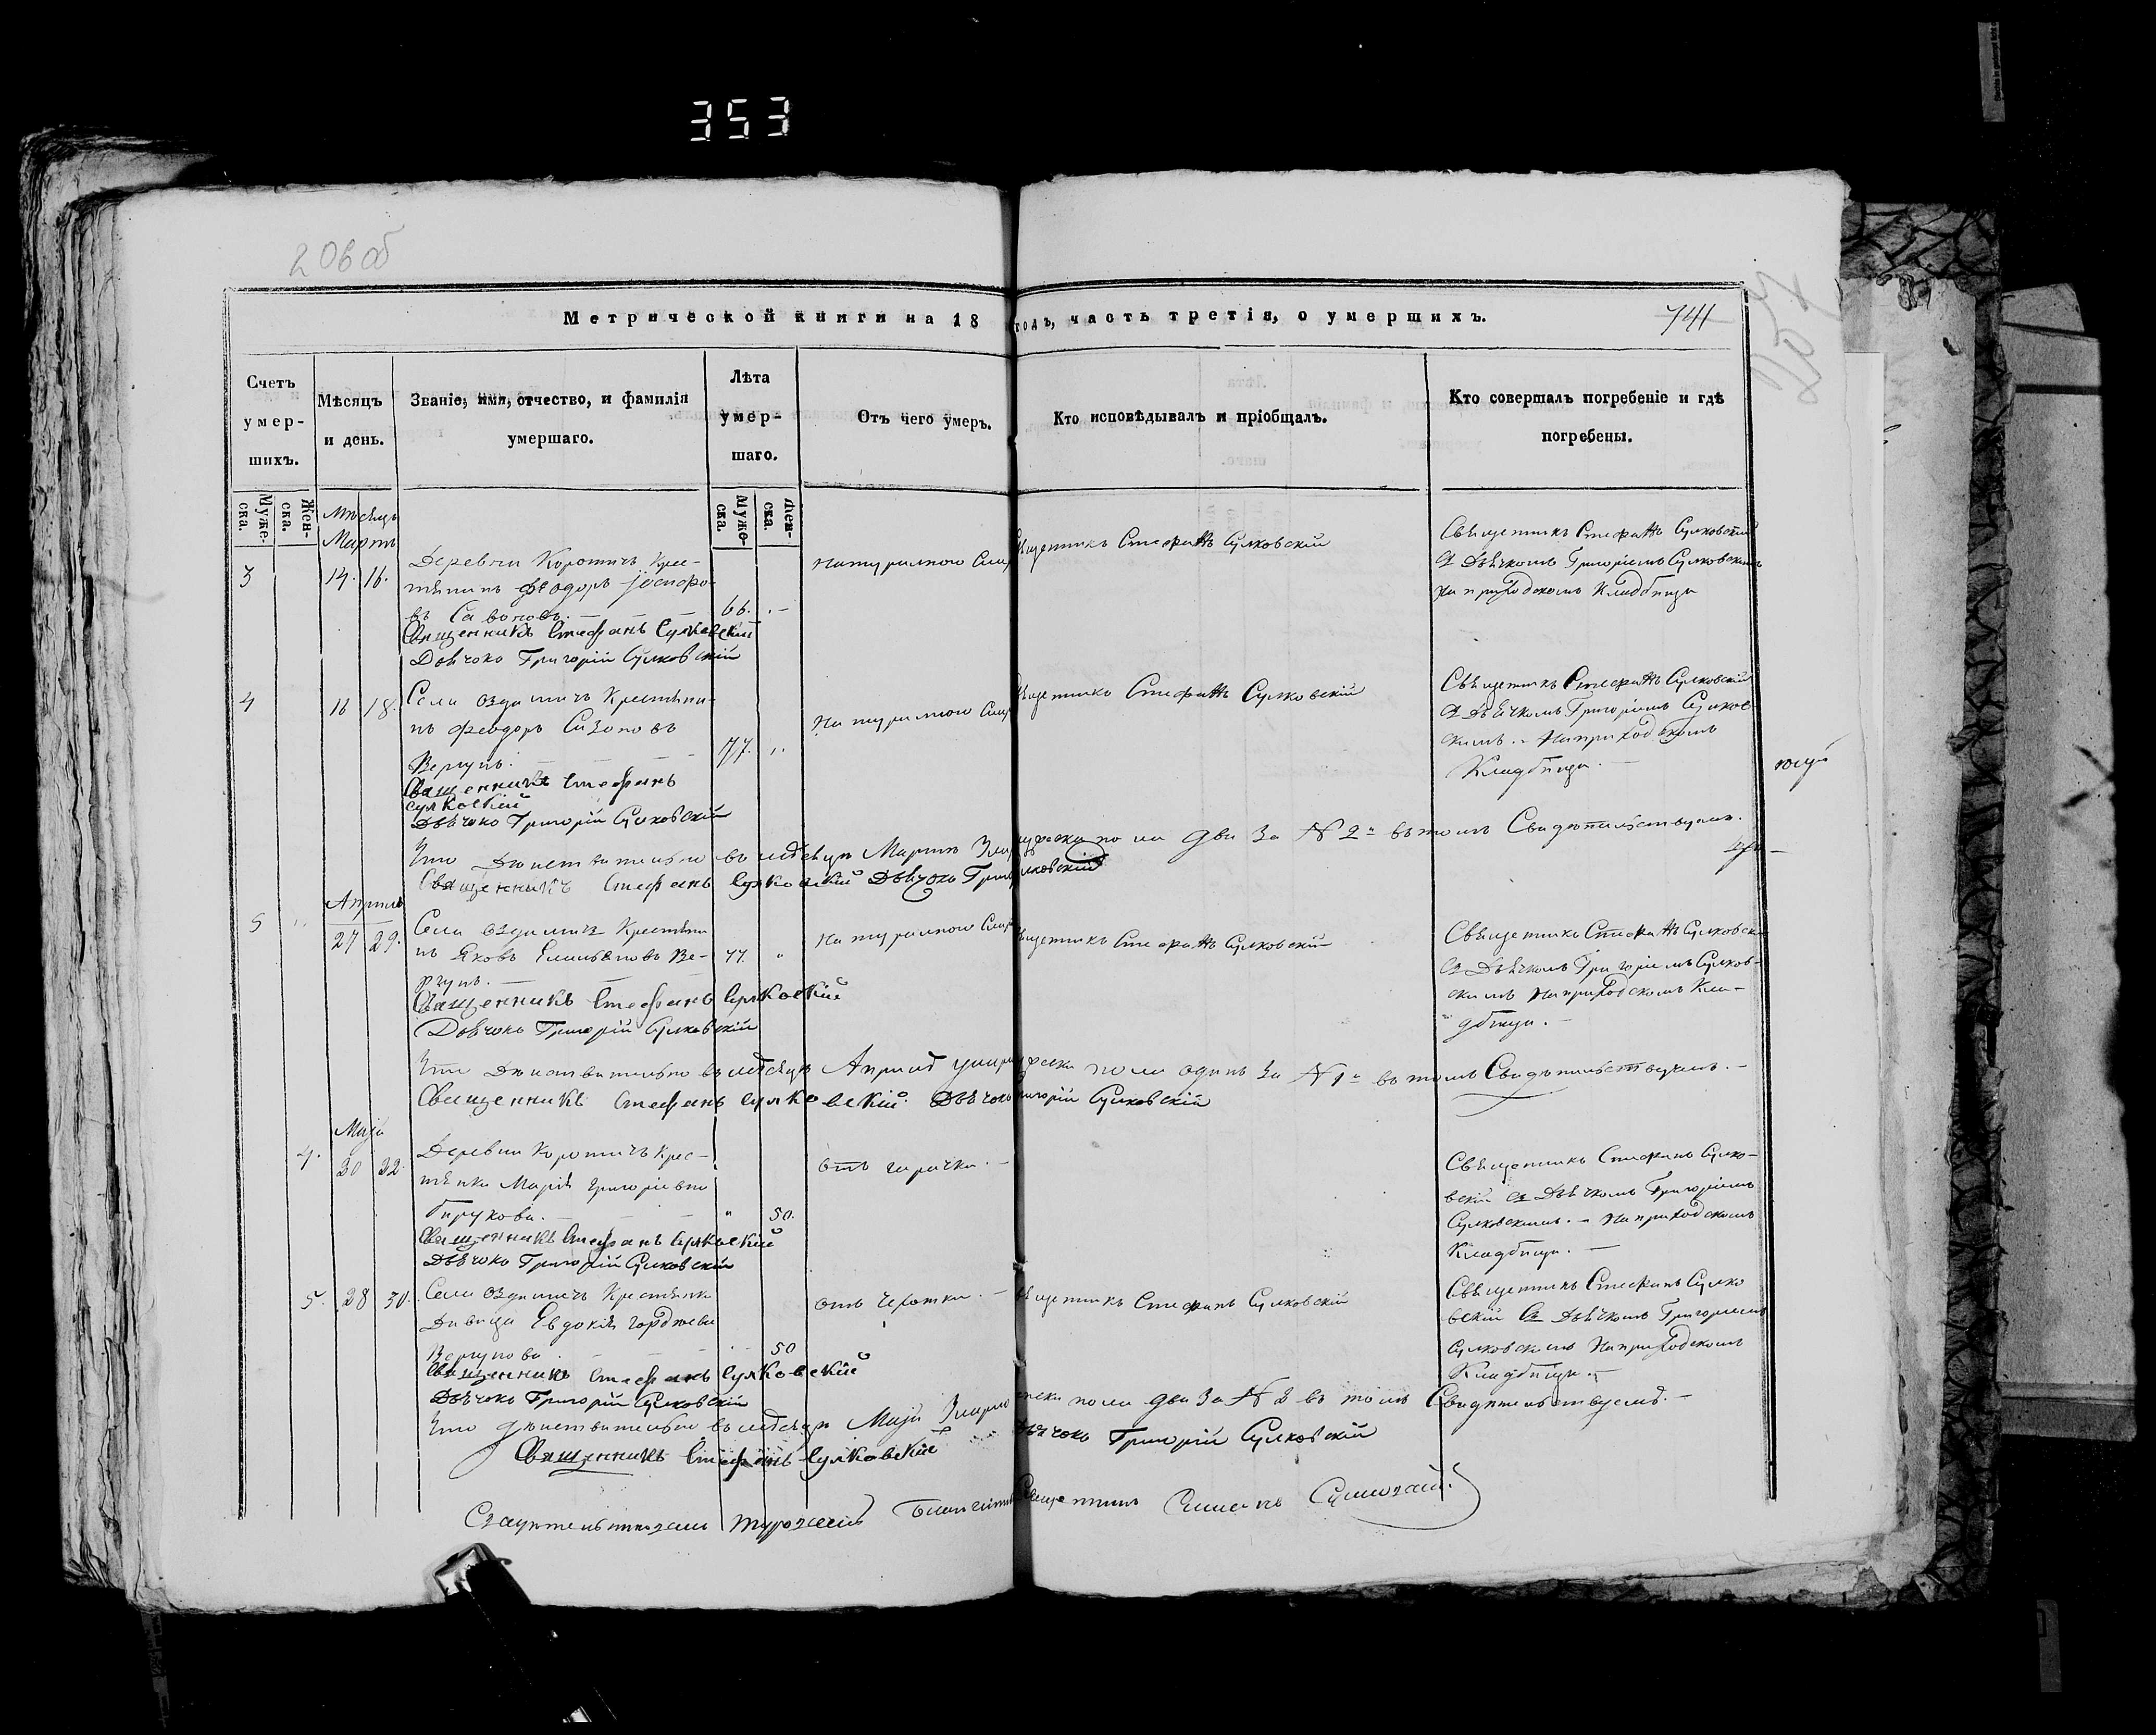 353
206 об
Метрической книги на 18 годъ, часть третія, о умершихъ.
741
207
Счетъ умер-шихъ.
Мѣсяцъ и день.
Званіе, имя, отчество, и фамилія умершаго.
Лѣта умер-шаго.
Отъ чего умеръ.
Кто исповѣдывалъ и пріобщалъ.
Кто совершалъ погребеніе и гдѣ погребены.
Муже-ска.
Жен-ска.
Муже-ска.
Жен-ска.
Мѣсяцъ
Мартъ
3
14. 16.
Деревни Коротичъ Крес-
тянинъ Феодоръ Іосифо-
въ
66.
Священникъ Стефанъ Сулковскій
Дьячокъ Григорій Сулковскій
Священникъ Стефанъ Сулковскій
Священникъ Стефанъ Сулковскій
съ Дьячкомъ Григоріемъ Сулковскимъ
на приходскомъ Кладбищи
4
16 18.
Села Оздамичъ Крестяни-
нъ Феодоръ Сизоновъ
Вергунъ.
77.
Священникъ Стефанъ
Сулковскій
Дьячокъ Григорій Сулковскій
Священникъ Стефанъ Сулковскій
Священникъ Стефанъ Сулковскій
съ Дьячкомъ Григоріемъ Сулков-
скимъ. На приходскомъ
Кладбищи.
Что дѣйствительно въ мѣсяцѣ Мартѣ пола два за N 2 въ томъ Свидѣтельствуемъ.
Священникъ Стефанъ Сулковскій Дьячокъ
Апрель
5
27 29.
Села Оздамичъ Крестяни
нъ Яковъ Емильяновъ Ве-
ргунъ.
77.
Священникъ Стефанъ Сулковскій
Дьячокъ Григорій Сулковскій
Священникъ Стефанъ Сулковскій
Священникъ Стефанъ Сулковскій
съ Дьячкомъ Григоріемъ Сулков-
скимъ на приходскомъ Кла-
дбищи.
Что дѣйствительно въ мѣсяцѣ пола одинъ за N 1 въ томъ Свидѣтельствуемъ.
Священникъ Стефанъ Сулковскій. Дьячокъ Григорій Сулковскій
Маія
4.
20 22.
Деревни Коротичъ Крес-
тянка Марія Григоріевна
50.
Священникъ Стефанъ Сулковскій
Дьячокъ Григорій Сулковскій
отъ горячки.
Священникъ Стефанъ Сулко-
вскій съ Дьячкомъ Григоріемъ
Сулковскимъ. На приходскомъ
Кладбищи.
5.
28 30.
Села Оздамичъ Крестянка
Дивица Евдокія
Вергунова
50
Священникъ Стефанъ Сулковскій
Дьячокъ Григорій Сулковскій
Священникъ Стефанъ Сулковскій
Священникъ Стефанъ Сулко
вскій съ Дьячкомъ Григоріемъ
Сулковскимъ На приходскомъ
Кладбищи.
Что дѣйствительно въ мѣсяцѣ Маіи пола два за N 2 въ томъ Свидѣтельствуемъ.
Священникъ Стефанъ Сулковскій
Дьячокъ Григорій Сулковскій